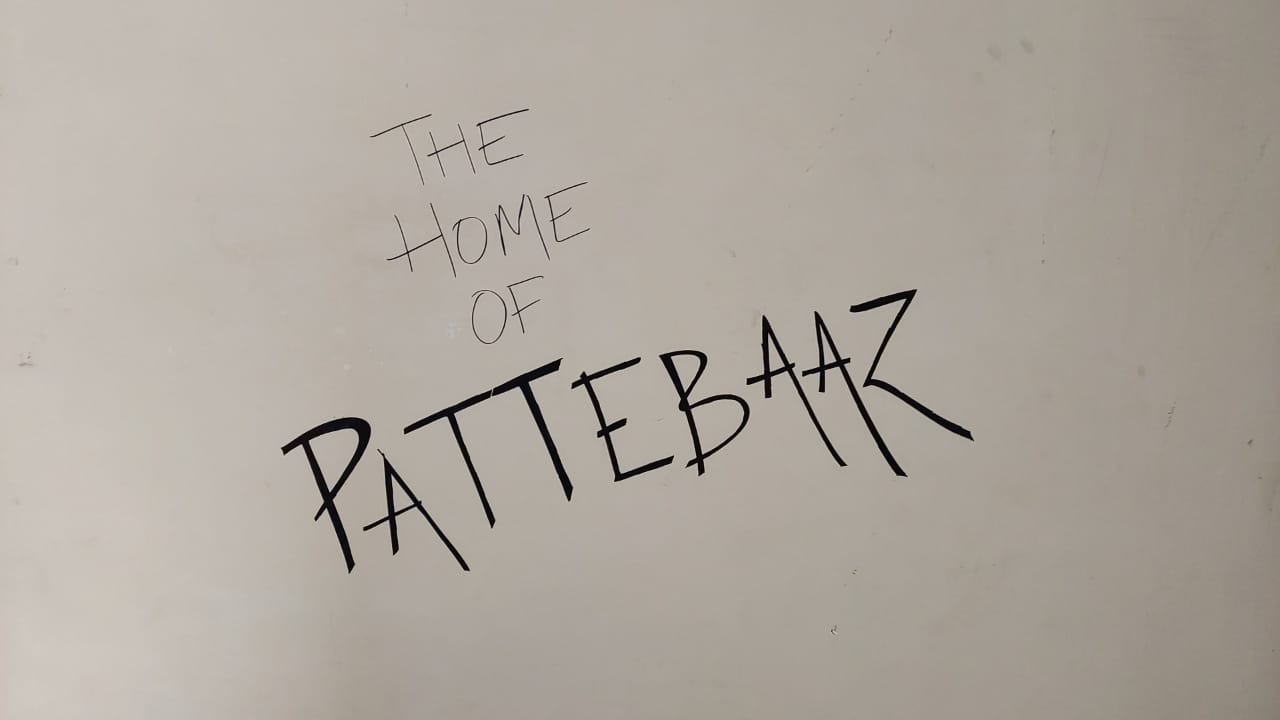 THE
HOME
OF
PATTEBAAZ